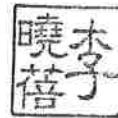 李曉蓓